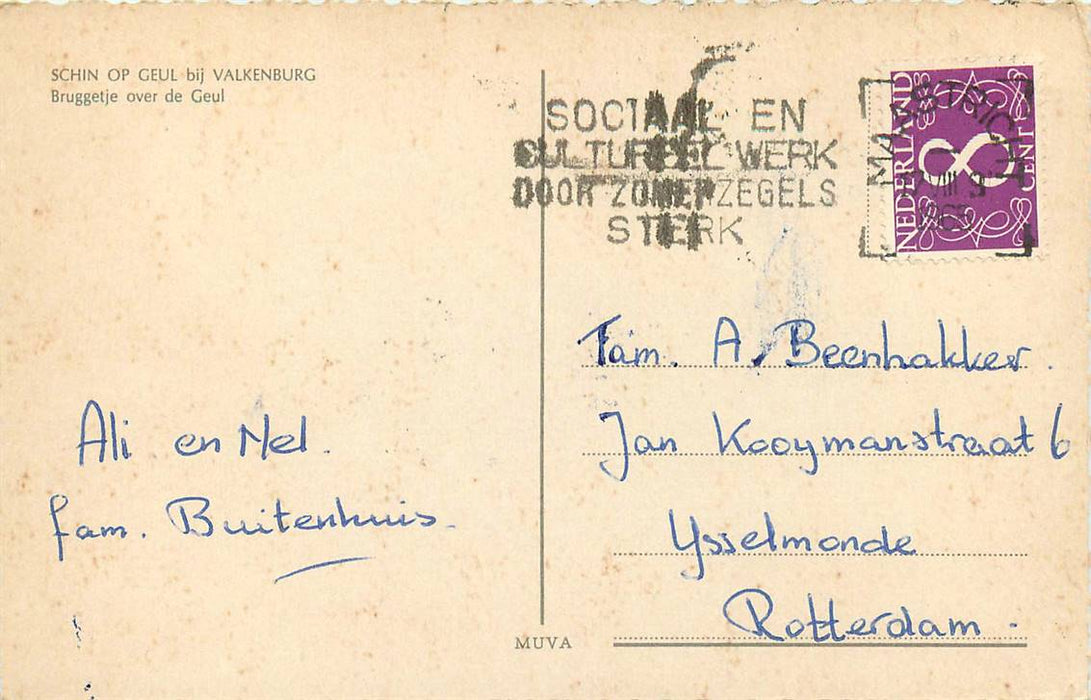 SCHIN OP GEUL bij VALKENBURG
Bruggetje over de Geul
SOCIAAL EN
CULTUREEL WERK
DOOR ZOMERZEGELS
STERK
MAASTRICHT
NEDERLAND
8
CENT
Fam. A. Beenhakker.
Jan Kooymanstraat 6
Ysselmonde
Rotterdam.
Ali en Nel.
fam. Buitenhuis.
MUVA